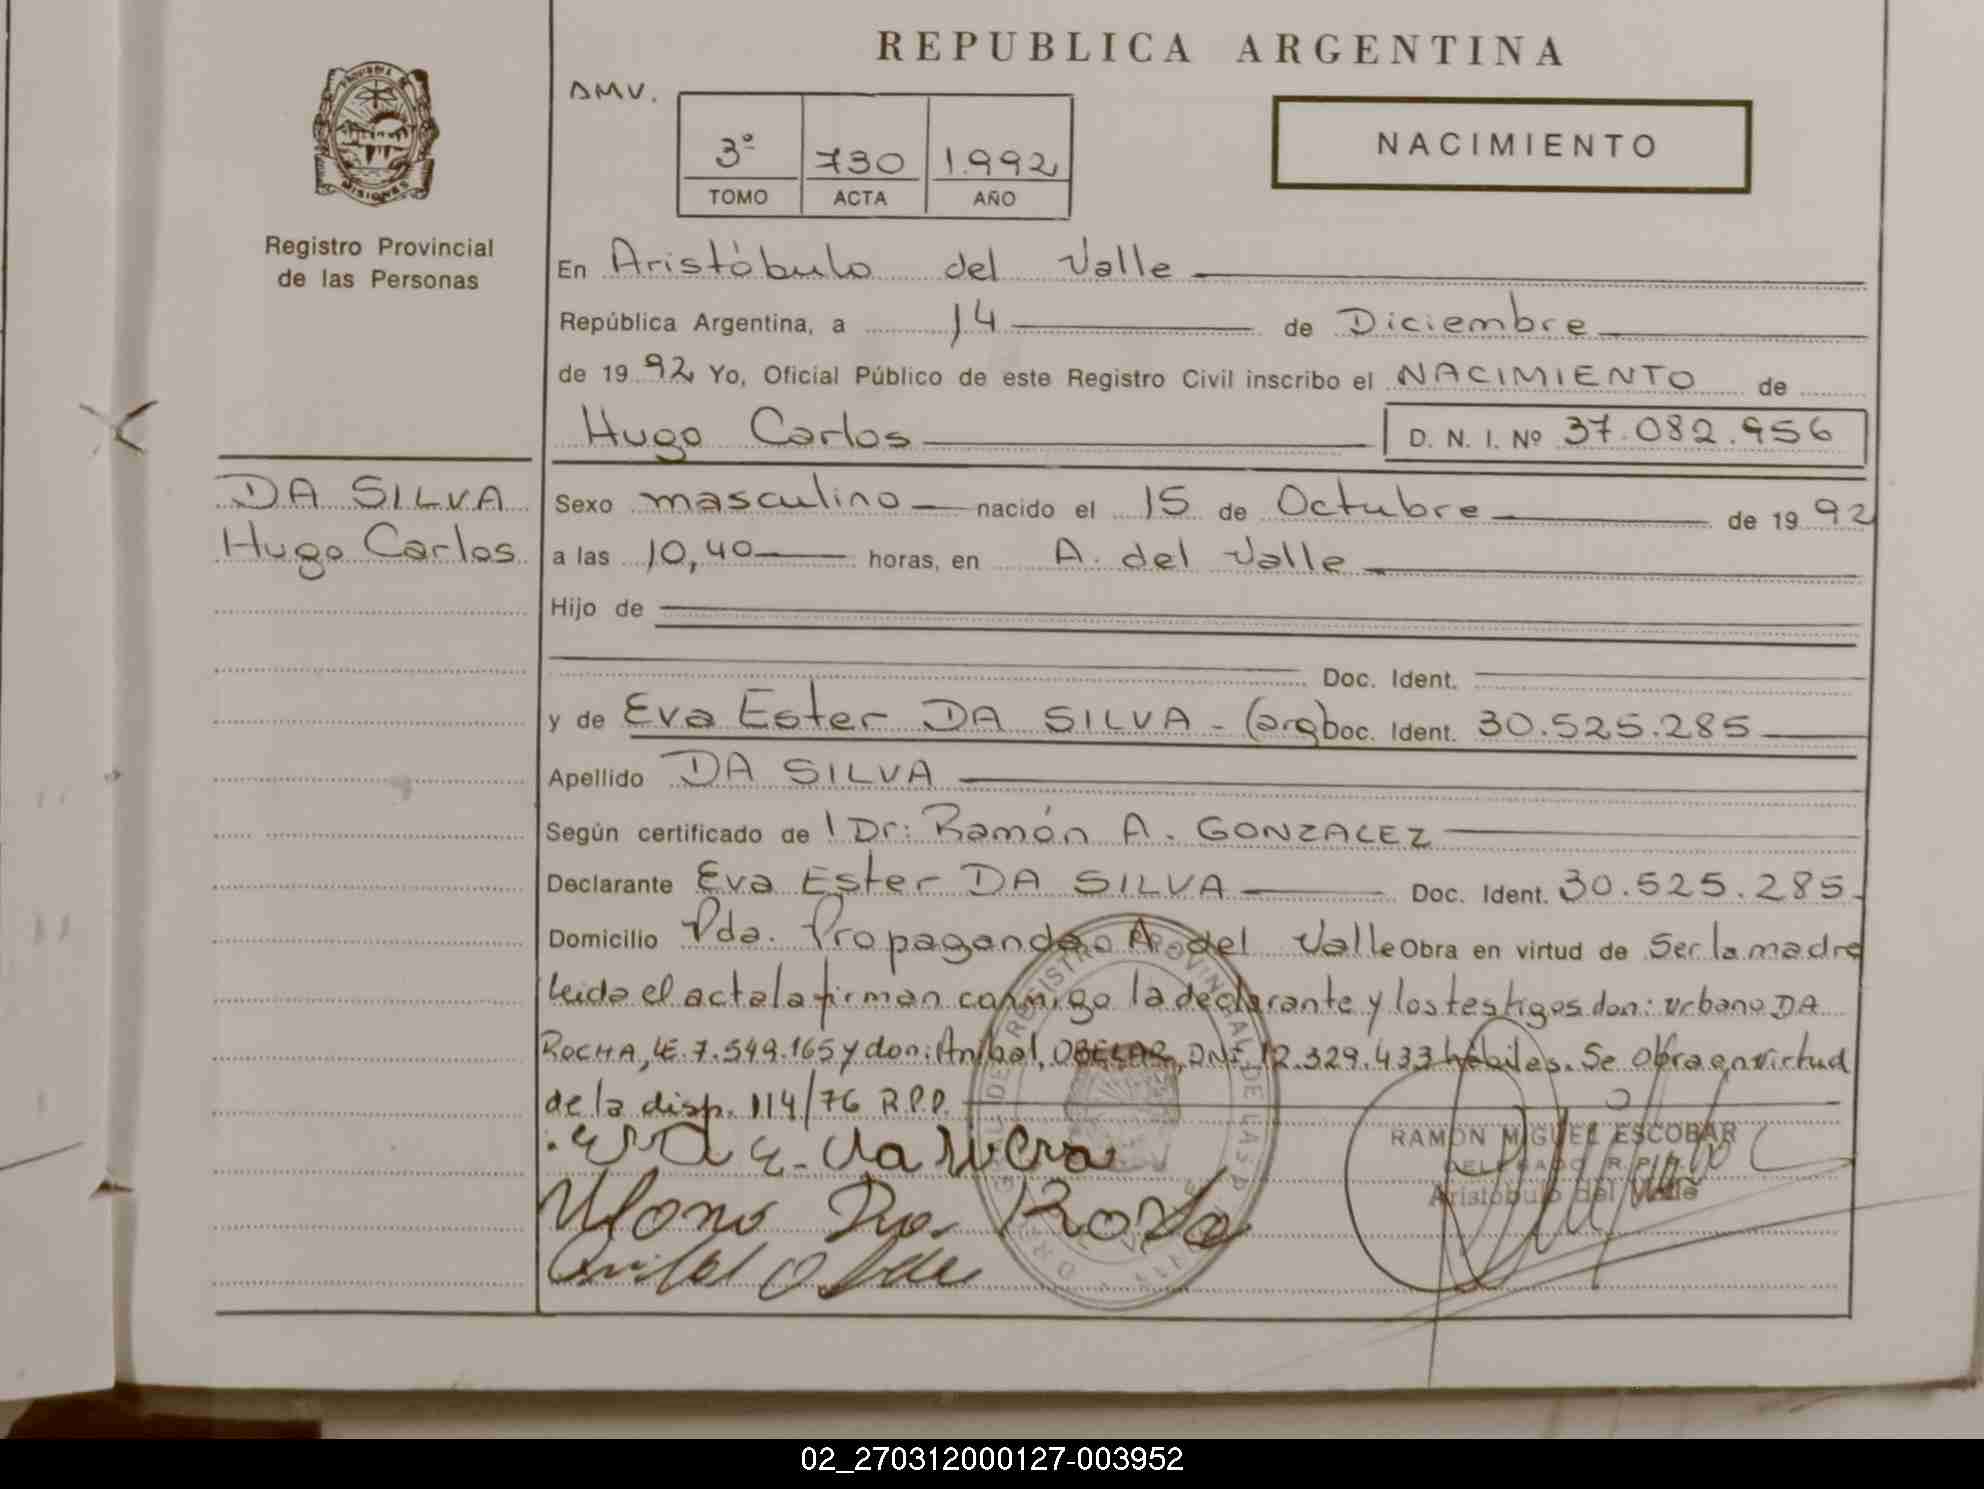 REPUBLICA ARGENTINA
DMV.
3º 730 1.992
TOMO ACTA AÑO
NACIMIENTO
PROVINCIA DE MISIONES
Registro Provincial
de las Personas
En Aristóbulo del Valle
República Argentina, a 14 de Diciembre
de 19 92 Yo, Oficial Público de este Registro Civil inscribo el NACIMIENTO de
Hugo Carlos D. N. I. Nº 37.082.956
DA SILVA
Hugo Carlos
Sexo masculino nacido el 15 de Octubre de 19 92
a las 10,40 horas, en A. del Valle
Hijo de
Doc. Ident.
y de Eva Ester DA SILVA - (arg) Doc. Ident. 30.525.285
Apellido DA SILVA
Según certificado de Dr: Ramón A. GONZALEZ
Declarante Eva Ester DA SILVA Doc. Ident. 30.525.285
Domicilio Pda. Propaganda A. del Valle Obra en virtud de Ser la madre
leida el acta la firman conmigo la declarante y los testigos don: Urbano DA
ROCHA, LE. 7.549.165 y don: Anibal, OBELAR, DNI. 12.329.433 hábiles. Se obra en virtud
de la disp. 114/76 R.P.P.
Eva E. da silva
RAMON MIGUEL ESCOBAR
DELEGADO R.P.
Aristóbulo del Valle
02_270312000127-003952